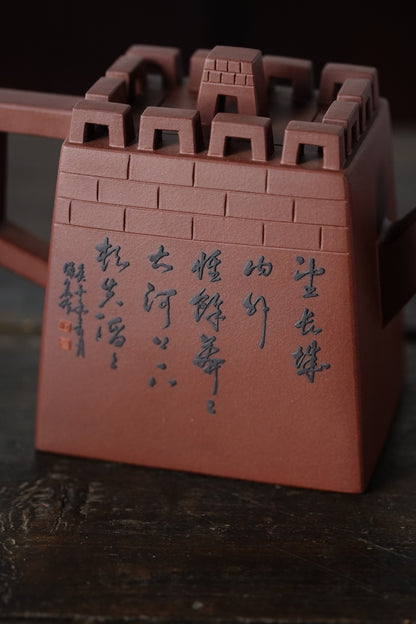 望长城
内外
惟餘莽〻
大河上下
顿失滔〻